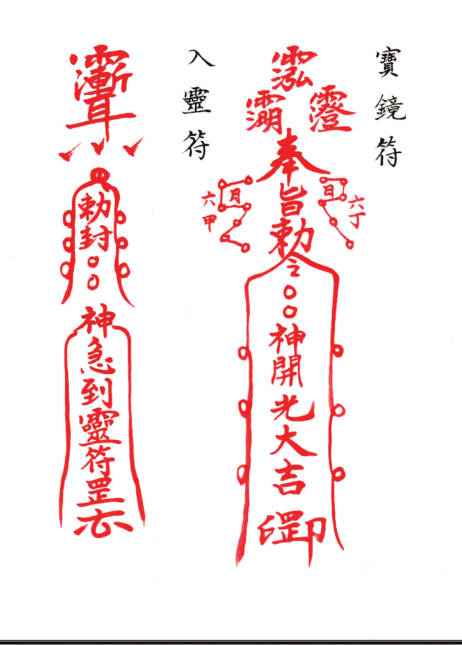 寶鏡符
奉旨勅令
日
月
六丁
六甲
神開光大吉
入靈符
勅封
神急到靈符罡